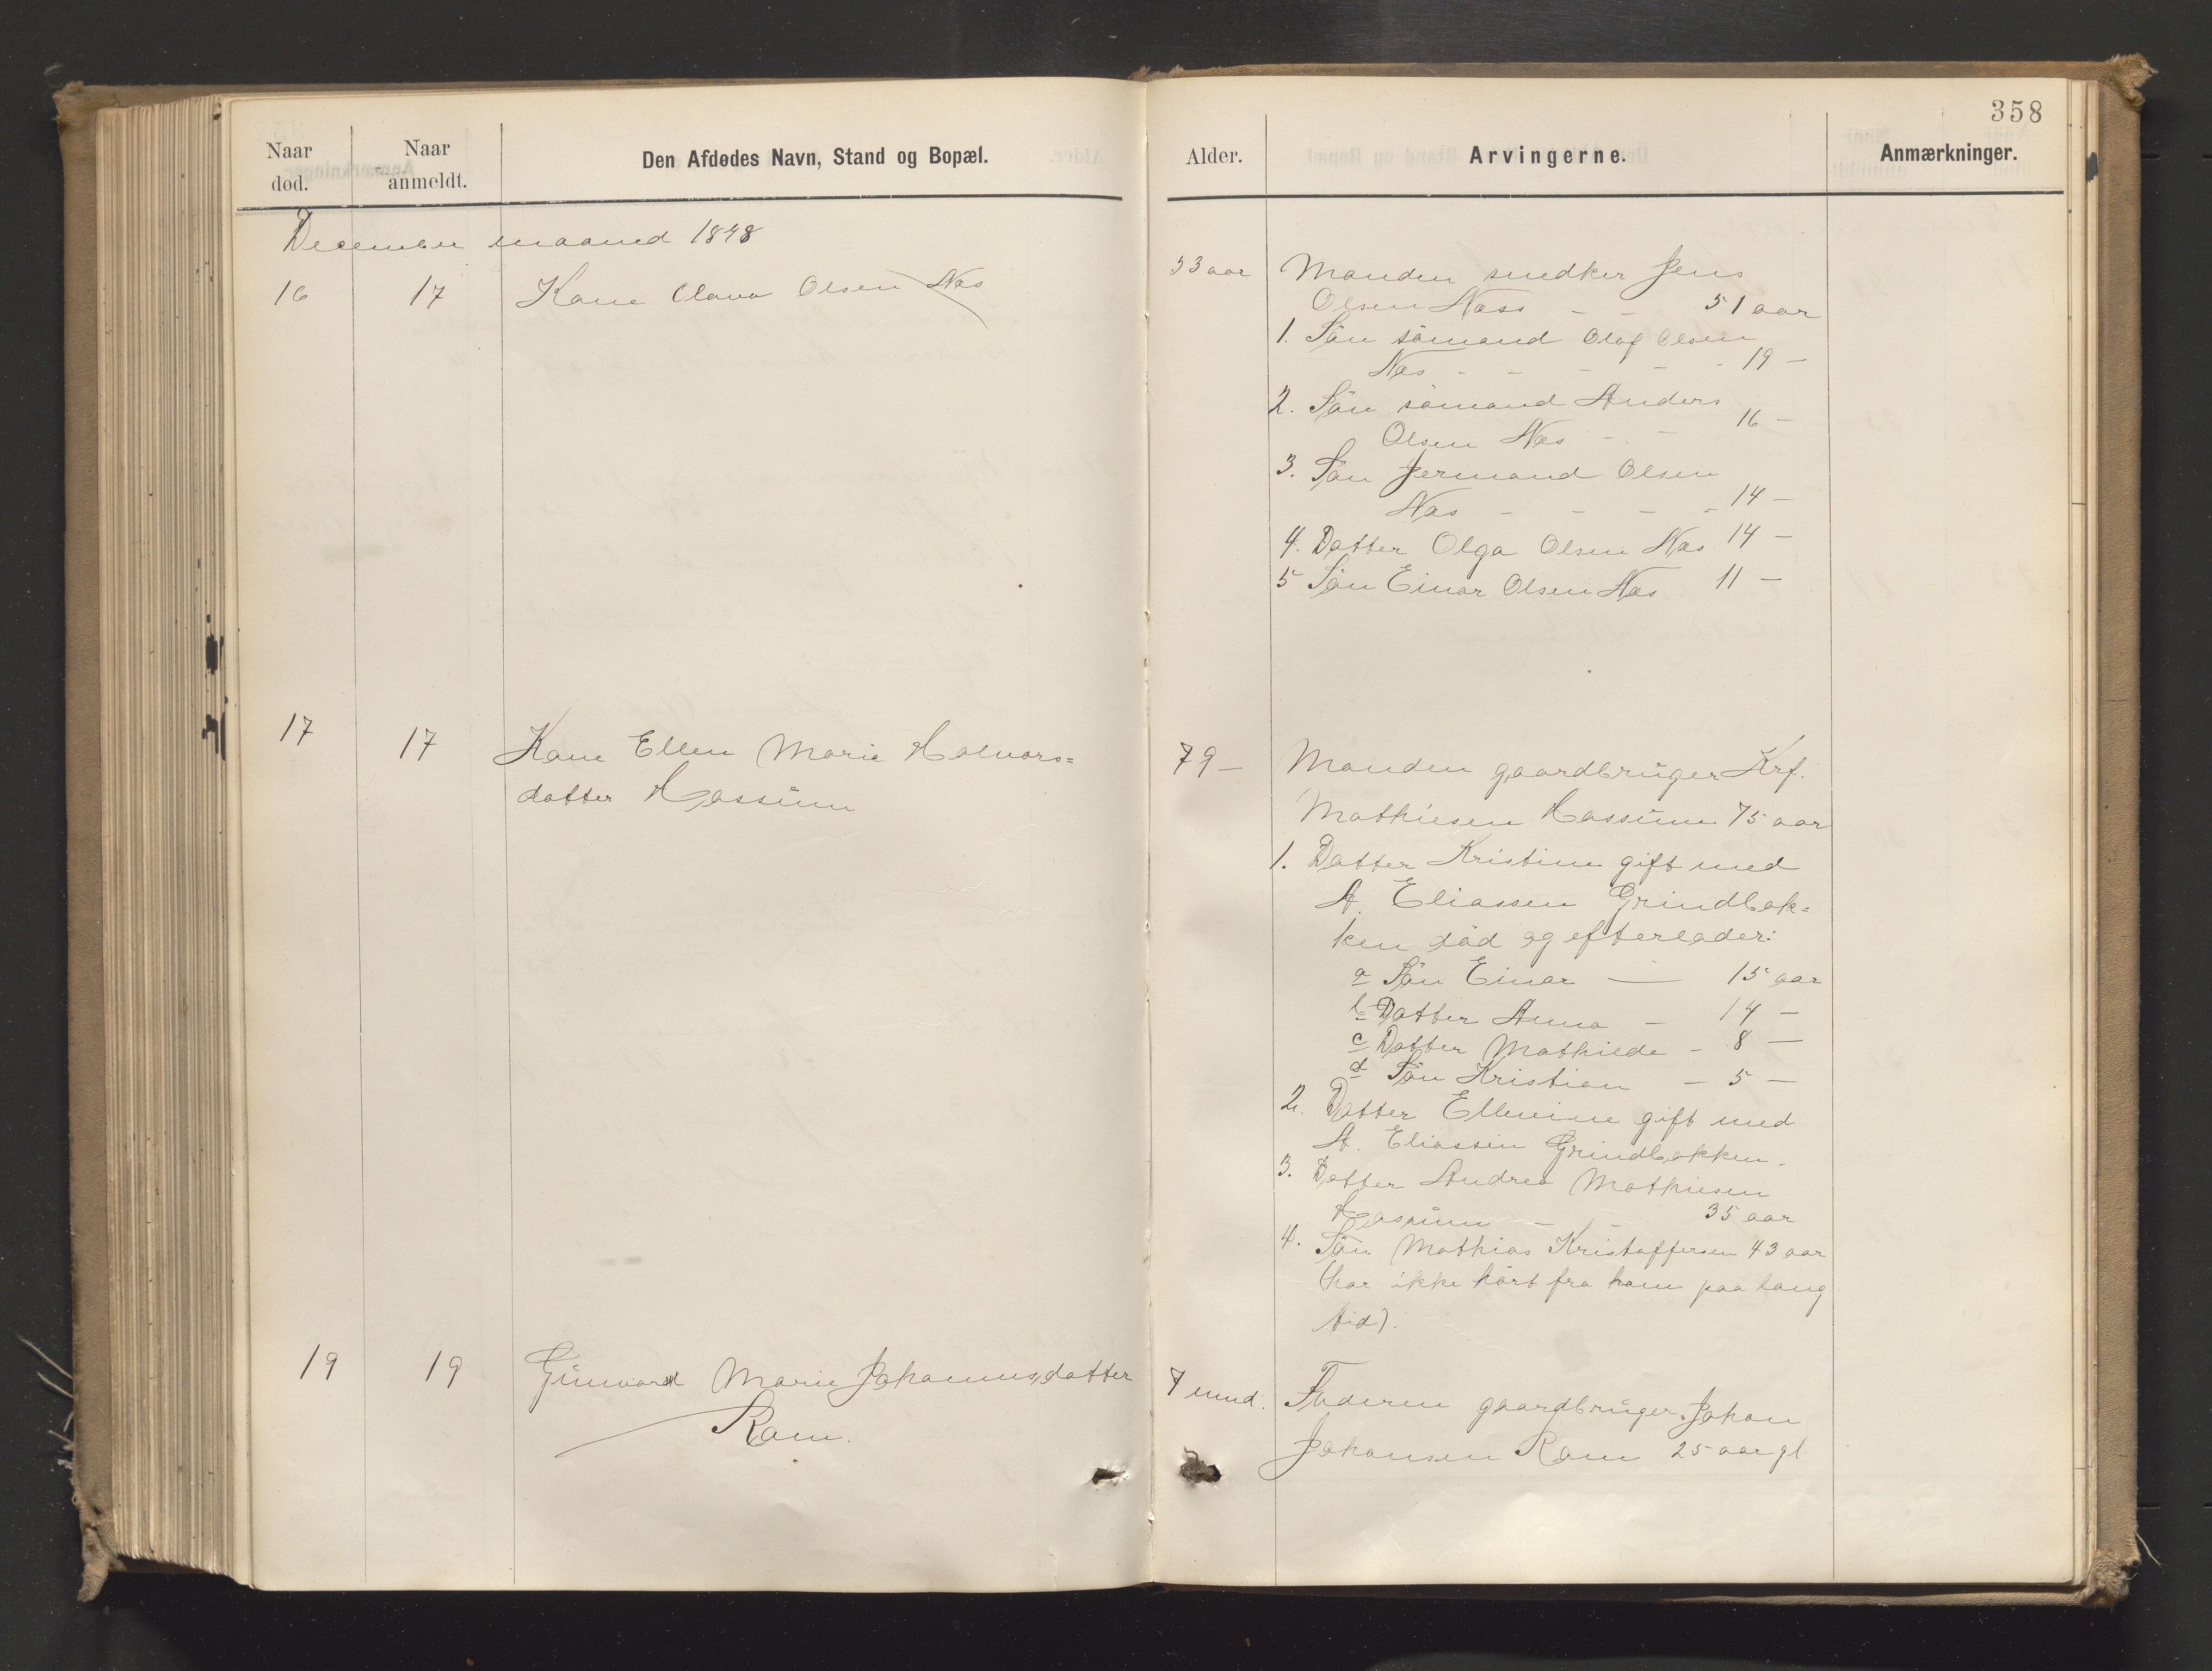 358
Naar død.
Naar anmeldt.
Den Afdødes Navn, Stand og Bopæl.
Alder.
Arvingerne.
Anmærkninger.
December maaned 1898
16 17 Kone Olava Olsen Næs
53 aar Manden snedker Jens
Olsen Næss - - 51 aar
1. Sön sömand Olaf Olsen
Næs - - - - - 19 -
2. Sön sömand Anders
Olsen Næs - - 16 -
3. Sön Jermand Olsen
Næs - - - - 14 -
4. Datter Olga Olsen Næs 14 -
5 Sön Einar Olsen Næs 11 -
17 17 Kone Ellen Marie Halvors=
datter Hassüm
79 - Manden gaardbrüger Krf.
Mathiesen Hassüm 75 aar
1. Datter Kristine gift med
A. Eliassen Grindbak=
ken död og efterlader:
a Sön Einar — 15 aar
b Datter Anna - 14 -
c Datter Mathilde - 8 -
d Sön Kristian - 5 -
2. Datter Ellevine gift med
A. Eliassen Grindbakken.
3. Datter Andrea Mathiesen
Hassüm - - 35 aar
4. Sön Mathias Kristoffersen 43 aar
(har ikke hört fra ham paa lang
tid).
19 19 Günvord Marie Johannesdatter
Ram.
7 mnd. Faderen gaardbrüger Johan
Johansen Ram 25 aar gl.